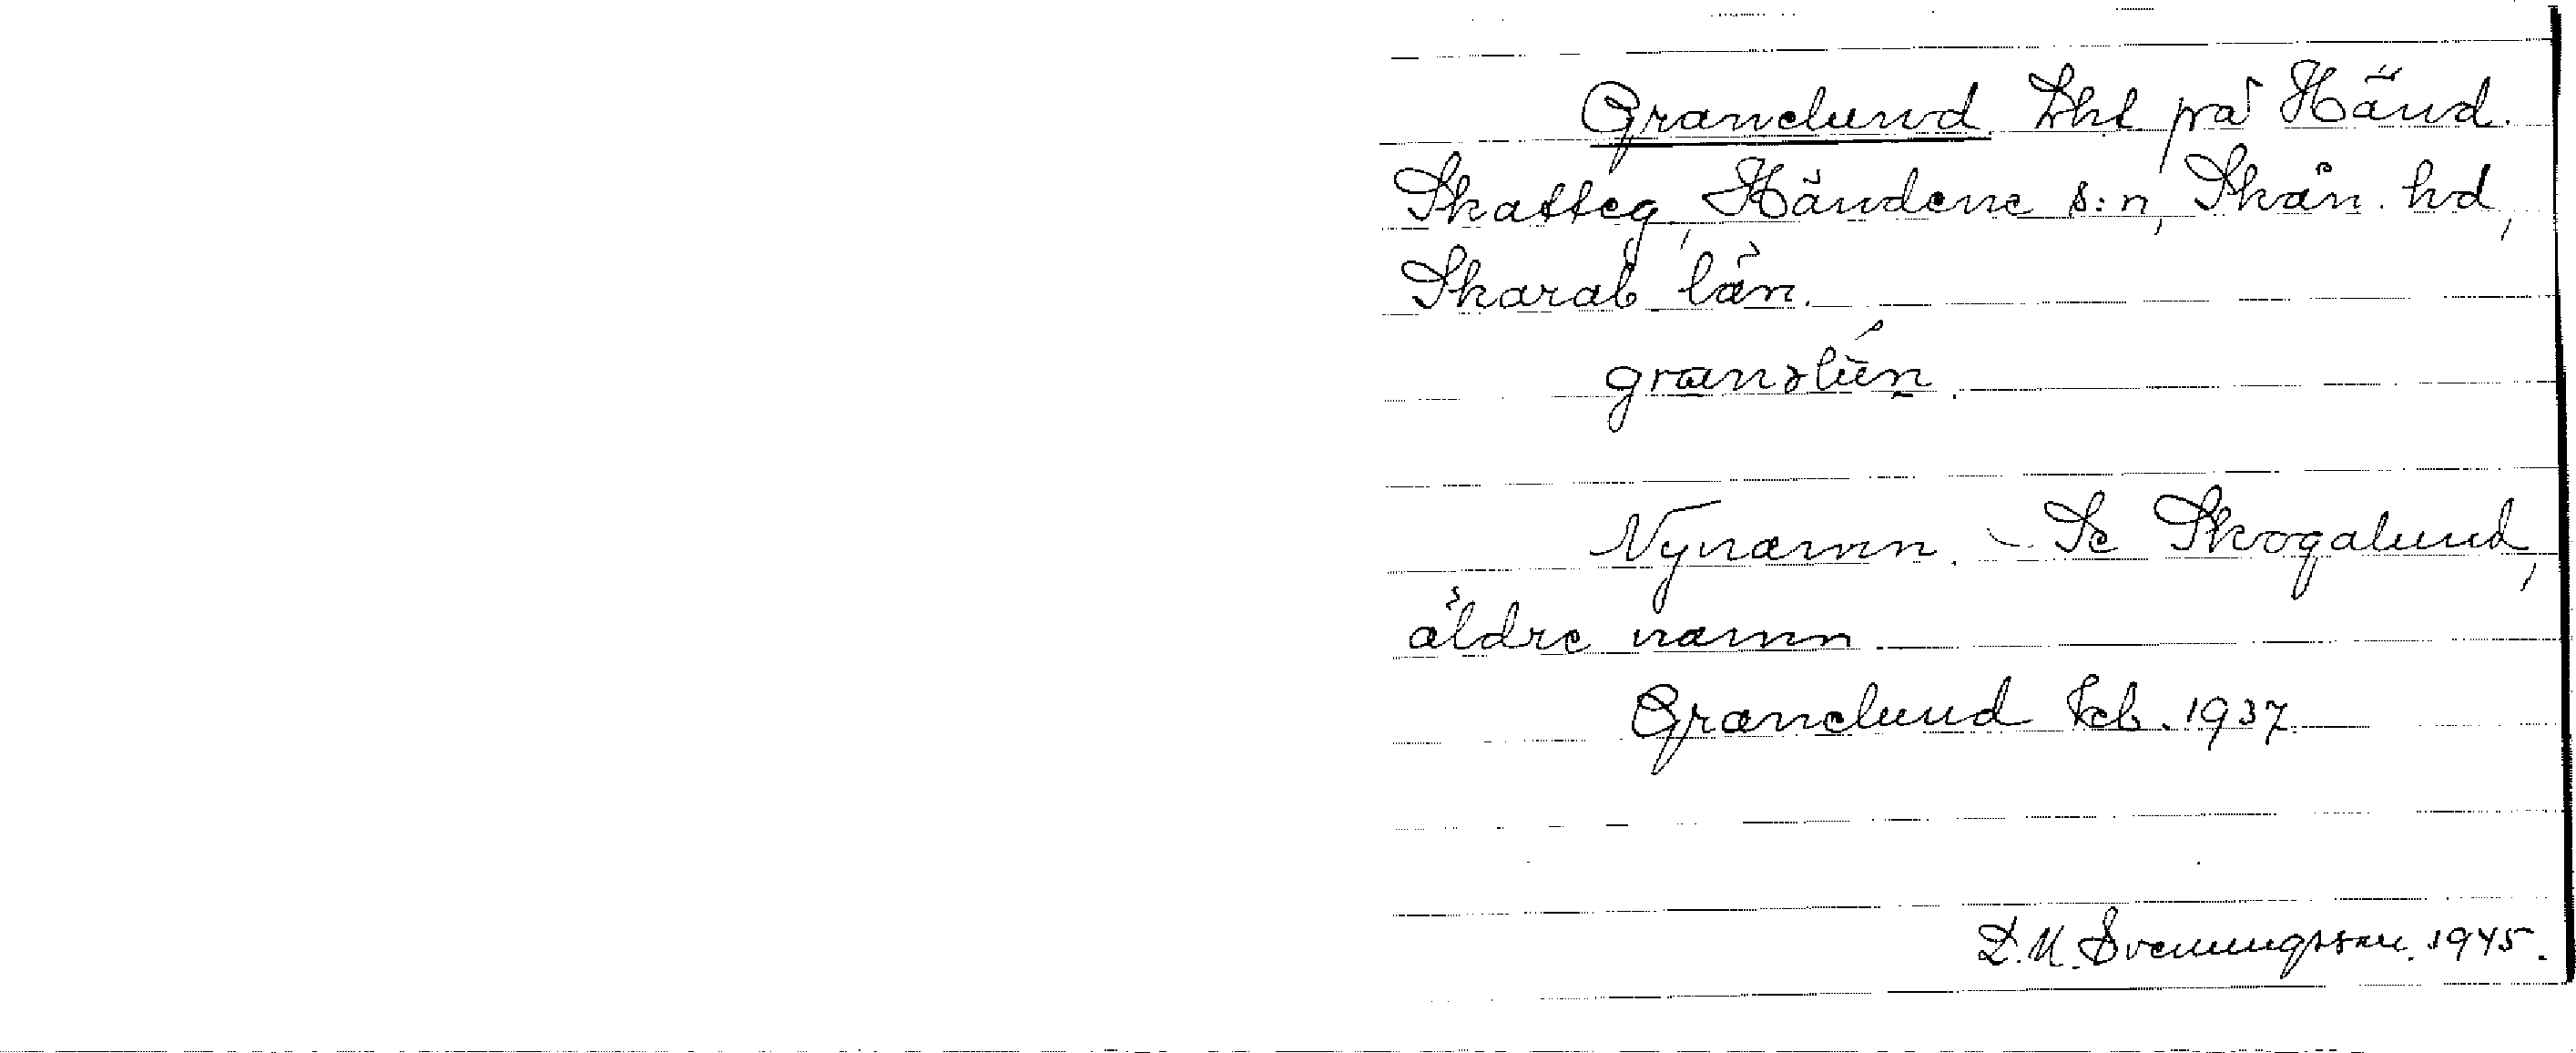 Granelund Lht på Händ.
Skatteg, Händene s:n, Skån. hd,
Skarab län.
Nynamn. – Se Skogalund,
äldre namn
Granelund Feb. 1937
D.U. Svenungsson. 1945.